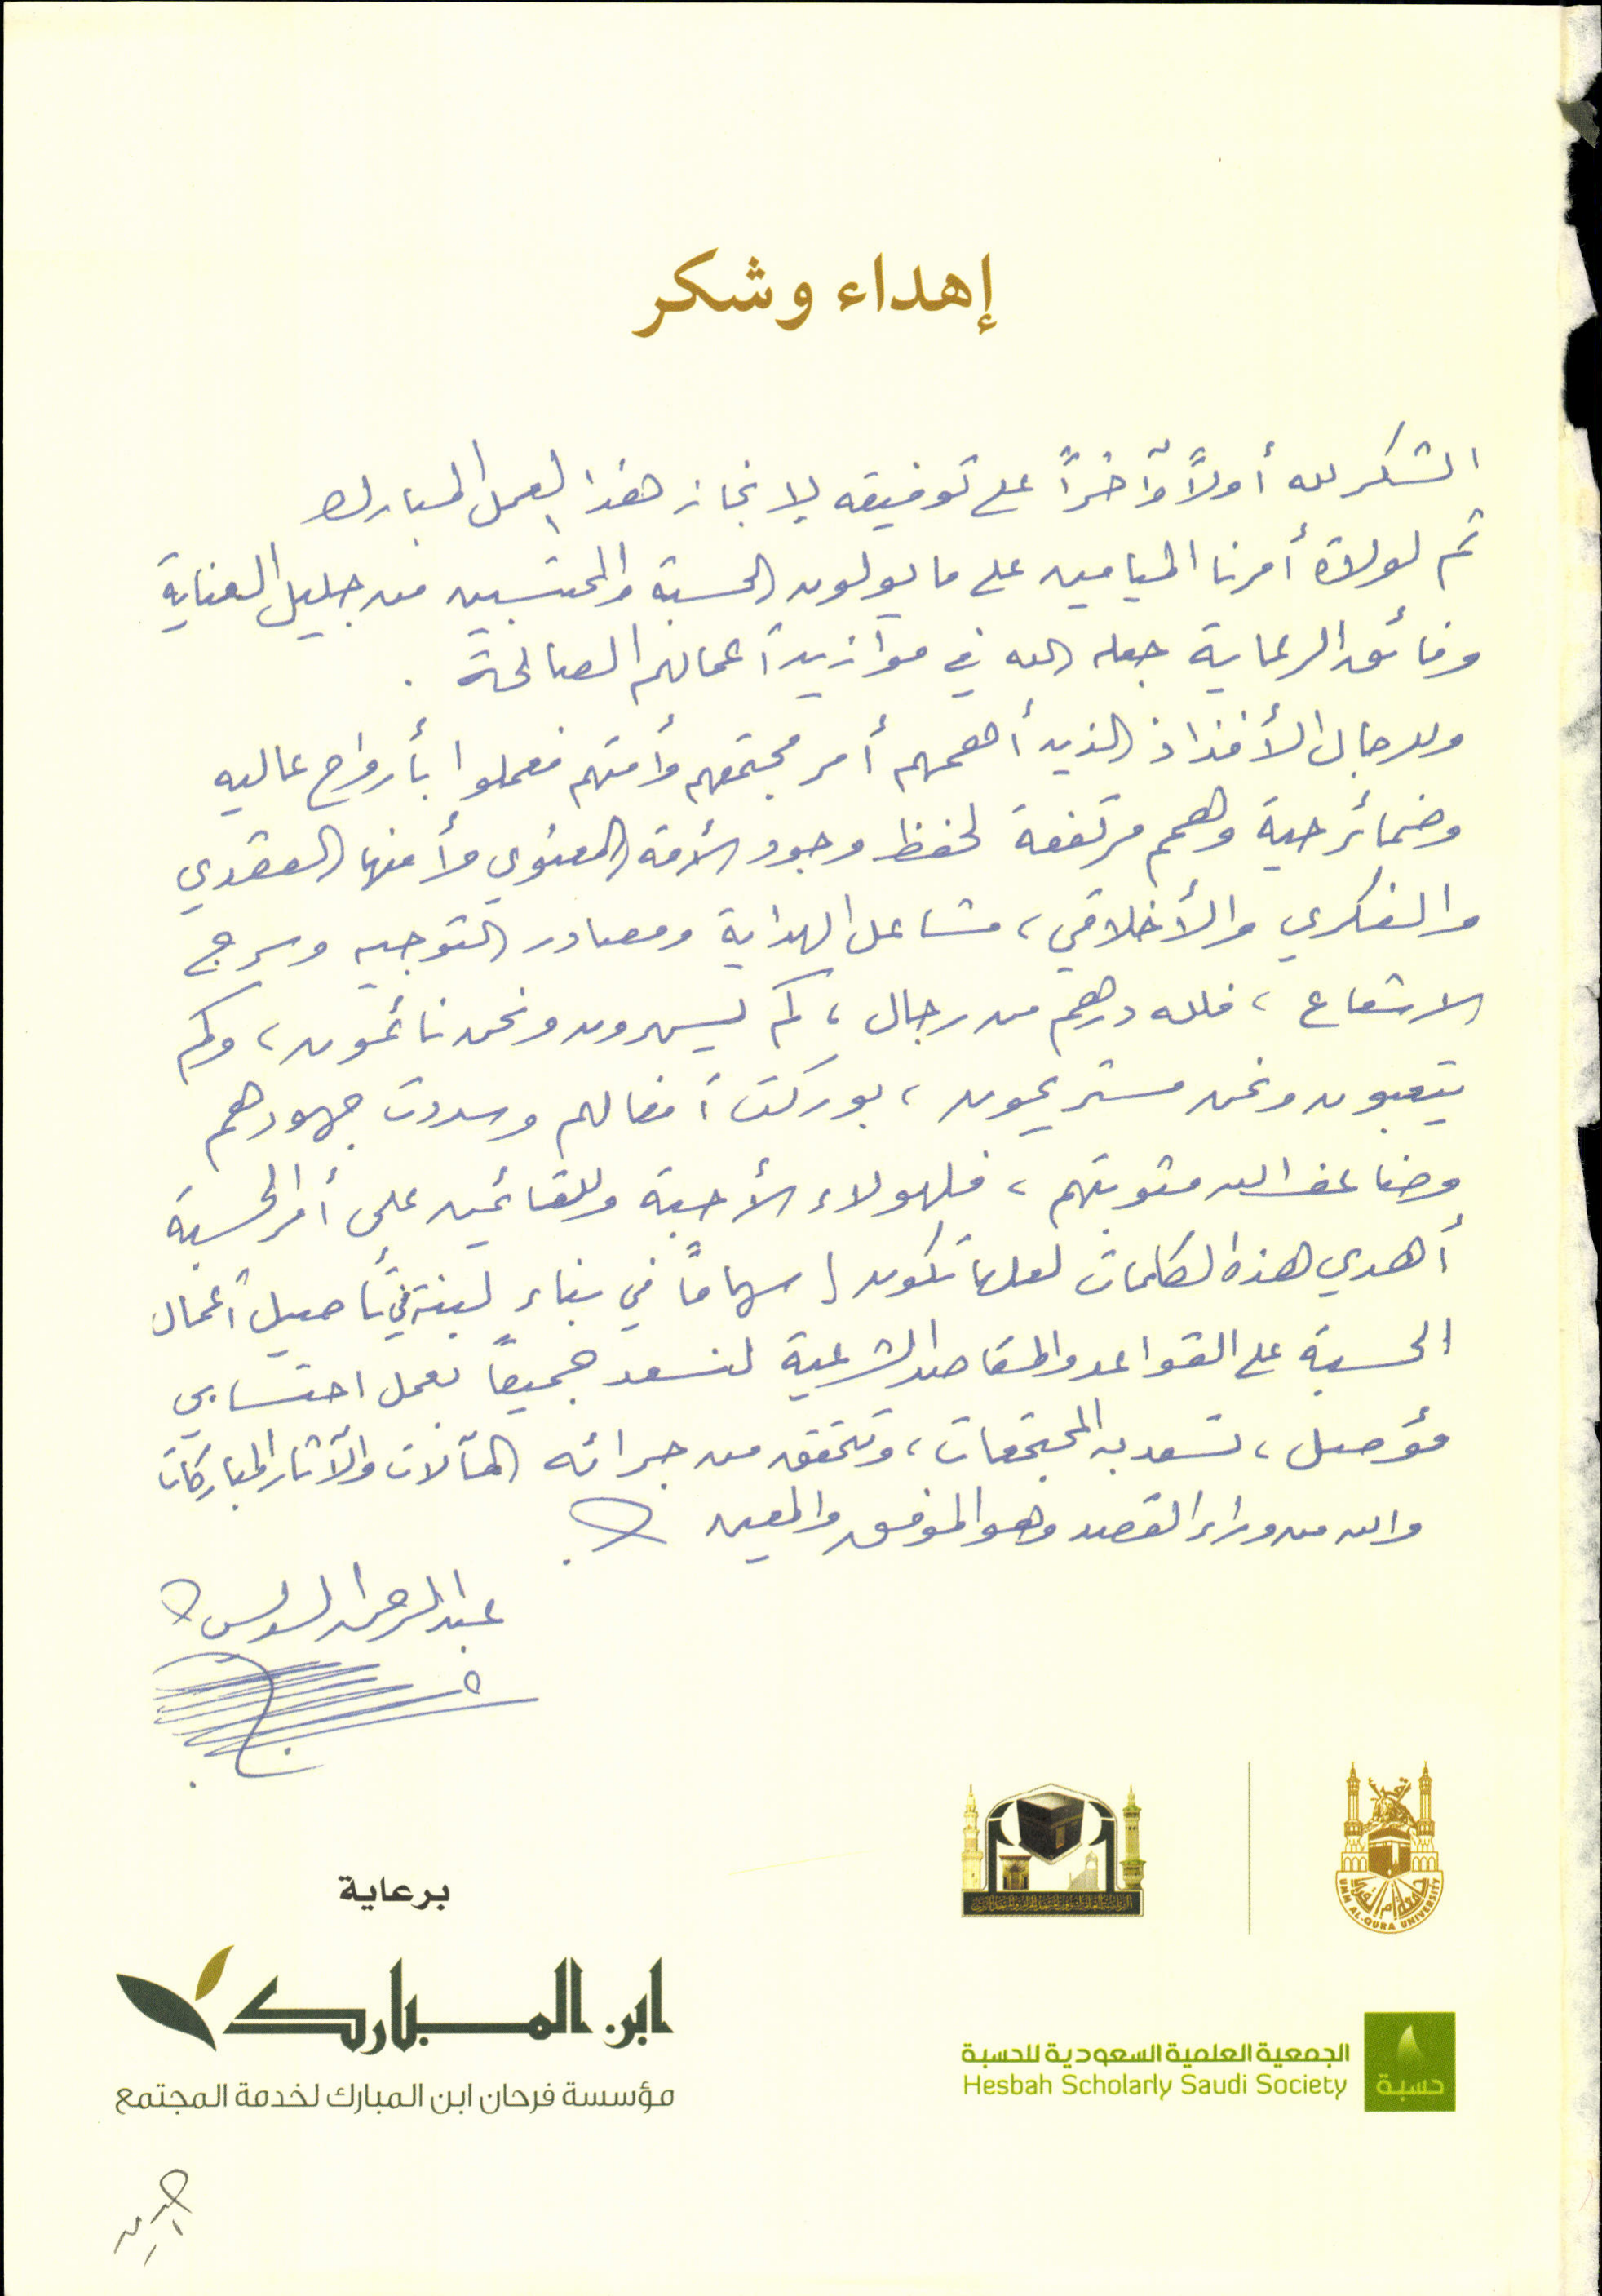 إهداء وشكر
الشكر لله أولاً وآخراً على توفيقه لإنجاز هذا العمل المبارك
ثم لولاة أمرنا الميامين على ما يولون الحسبة والمحتسبين من جليل العناية
وفائق الرعاية جعله الله في موازين أعمالهم الصالحة .
وللرجال الأفذاذ الذين أهمهم أمر مجتمعهم وأمتهم فعملوا بأرواح عاليه
وضمائر حية وهمم مرتفعة لحفظ وجود الأمة المعنوي وأمنها العقدي
والفكري والأخلاقي، مشاعل الهداية ومصادر التوجيه وسرج
الاشعاع، فلله درهم من رجال، كم يسهرون ونحن نائمون، وكم
يتعبون ونحن مستريحون، بوركت أفعالهم وسددت جهودهم
وضاعف الله مثوبتهم، فلهولاء الأحبة وللقائمين على أمر الحسبة
أهدي هذه الكلمات لعلها تكون إسهاماً في بناء لبنة في تأصيل أعمال
الحسبة على القواعد والمقاصد الشرعية لنسعد جميعاً بعمل احتسابي
مؤصل، تسعد به المجتمعات، وتتحقق من جرائه المآلات والآثار المباركات
والله من وراء القصد وهو الموفق والمعين
عبدالرحمن السديس
برعاية
ابن المبارك
مؤسسة فرحان ابن المبارك لخدمة المجتمع
جامعة أم القرى
UMM AL-QURA UNIVERSITY
الجمعية العلمية السعودية للحسبة
Hesbah Scholarly Saudi Society
حسبة